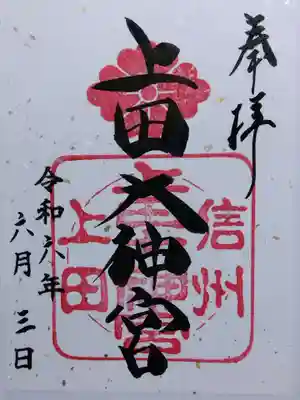 奉拝
上田大神宮
信州
上田
令和六年
六月三日